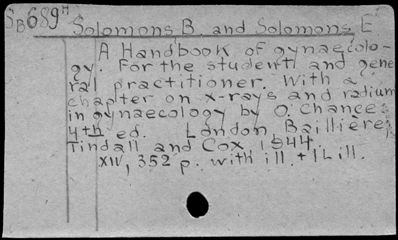 SB689H
Solomons B and Solomons E
A Handbook of gynaecolo-
gy. For the student and gene
ral practitioner. With a
chapter on x-rays and radium
in gynaecology by O. Chance.
4th ed. London, Baillière,
Tindall and Cox, 1944.
XII, 352 p. with ill. + 1 L ill.